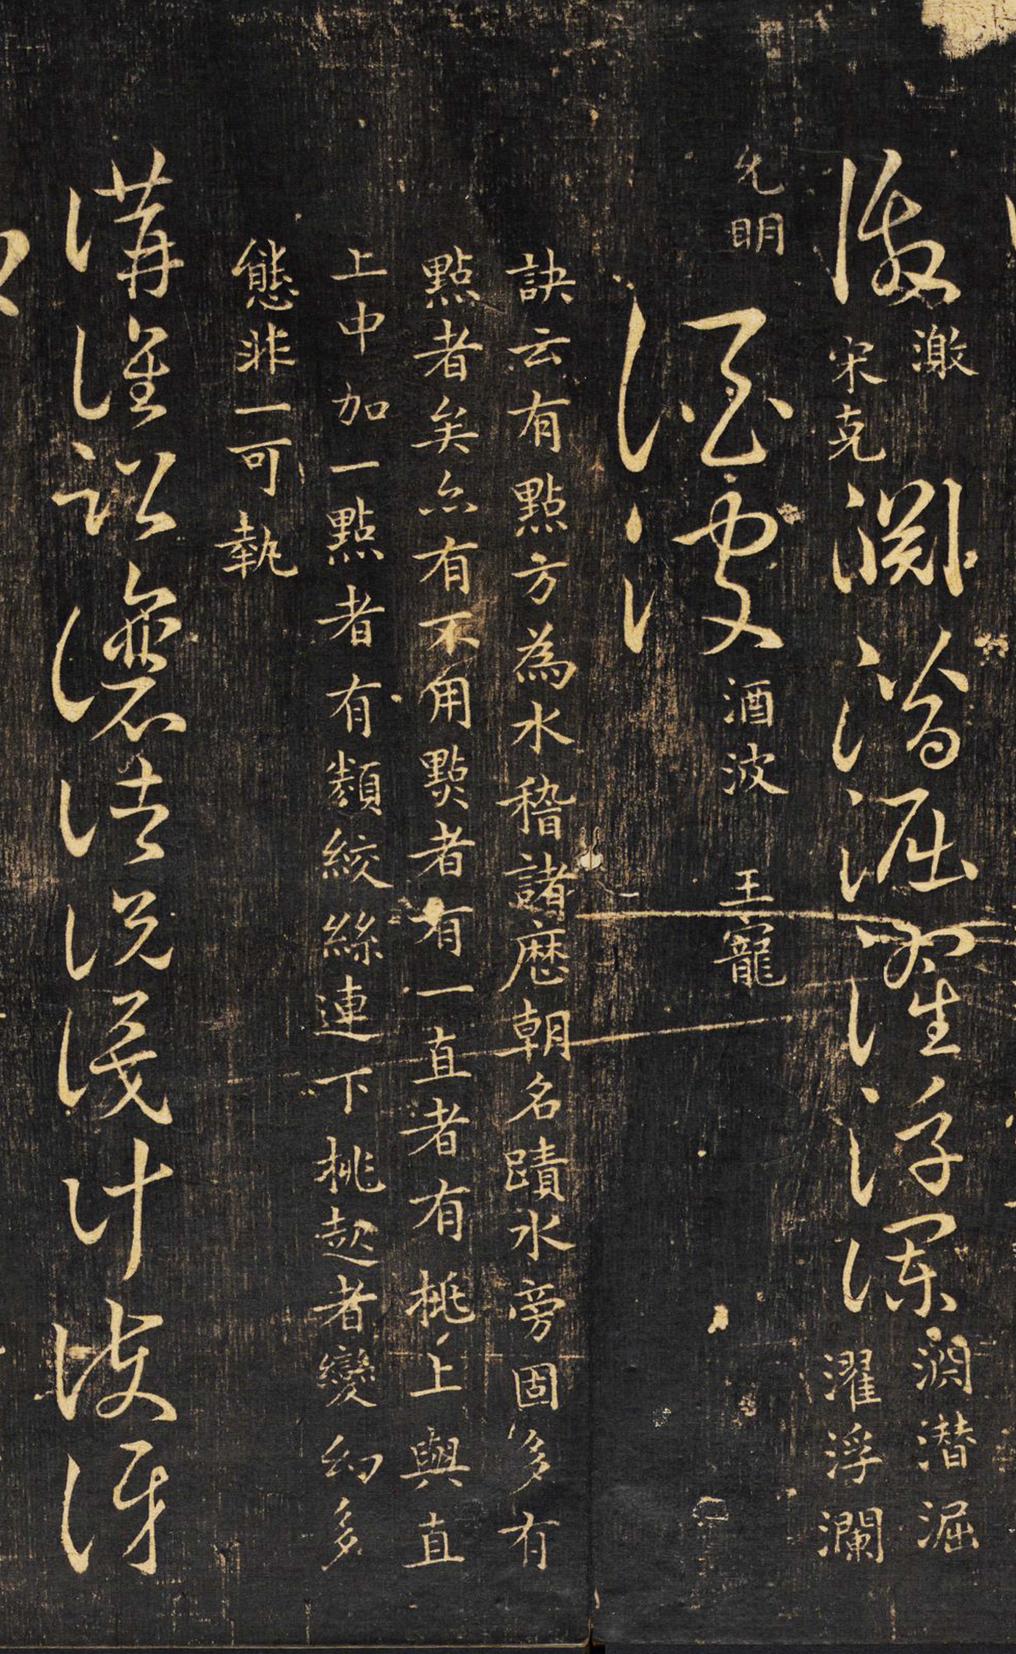 激 激 宋克 淵潛淈濯浮瀾 淵潛淈濯浮瀾
允明 酒波 酒波 王寵
訣云有點方為水稽諸歷朝名蹟水旁固多有
點者矣亦有不用點者有一直者有挑上與直
上中加一點者有類絞絲連下挑起者變幻多
態非一可執
講謹訟讓說計訝